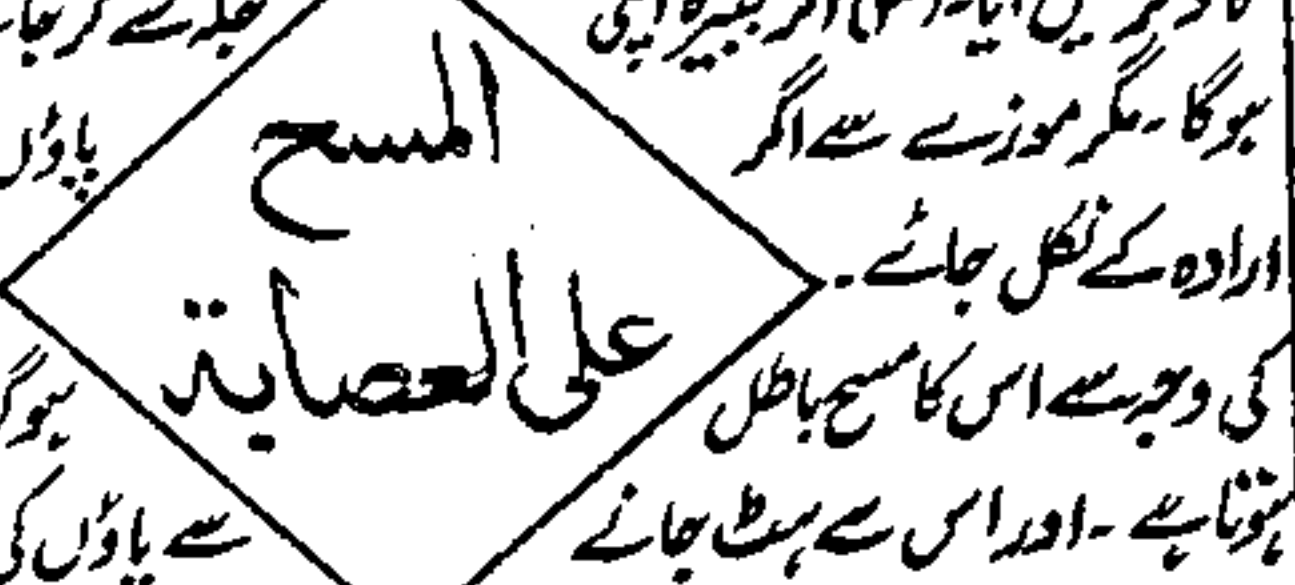 ہوگا۔ مگر موزے سے اگر
ارادہ کے نکل جائے۔
کی وجہ سے اس کا مسح باطل
ہوتا ہے۔ اور اس سے ہٹ جانے
المسح
علی العصابة
پاؤں
سے پاؤں کی